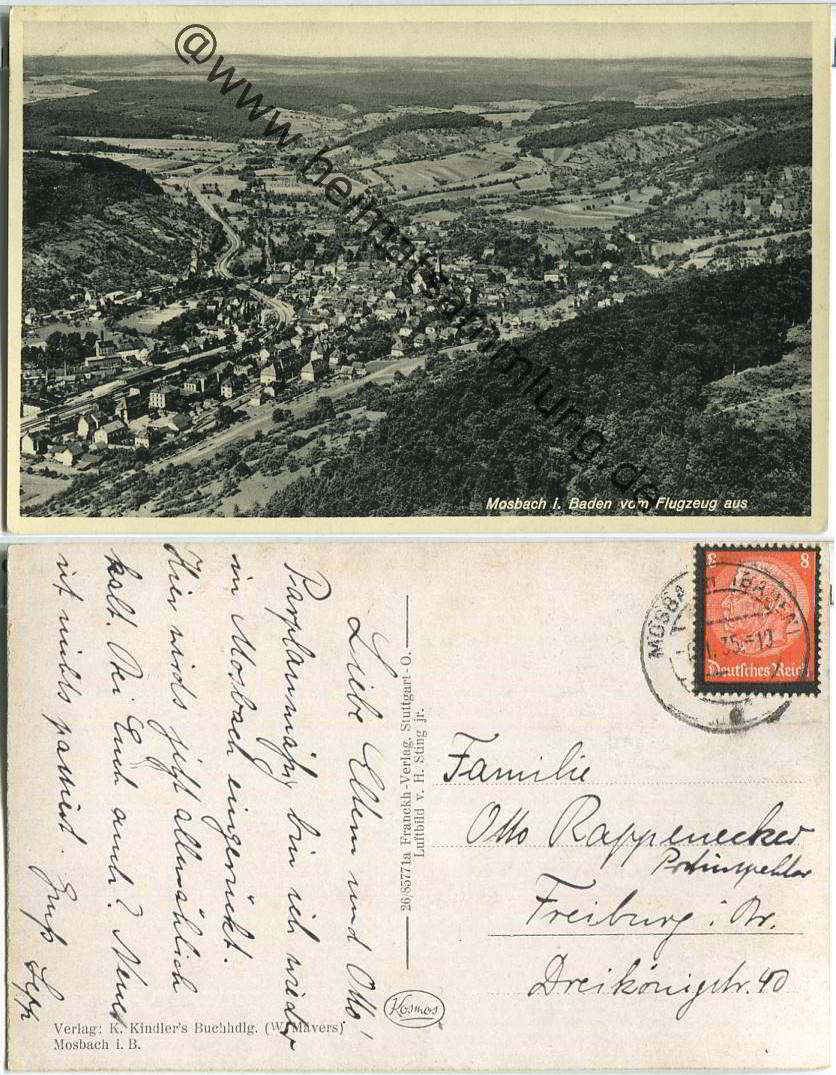 @www.heimatsammlung.de
Mosbach i. Baden vom Flugzeug aus
Liebe Eltern und Otto!
bin ich wieder
in Mosbach eingerückt.
Hier wirds jetzt allmählich
kalt. Bei Euch auch? Neues
ist nichts passiert. Gruß Sepp
26/85771a Franckh-Verlag, Stuttgart-O.
Luftbild v. H. Sting jr.
Kosmos
MOSBACH (BADEN)
35.-10
8 8
Deutsches Reich
Familie
Otto Rappenecker
Postinspektor
Freiburg i. Br.
Dreikönigstr. 40
Verlag: K. Kindler's Buchhdlg. (W. Mävers)
Mosbach i. B.